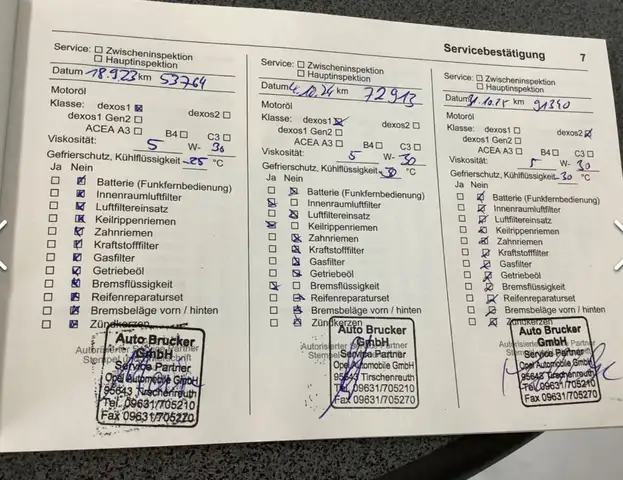 Servicebestätigung 7
Service: ☐ Zwischeninspektion
☐ Hauptinspektion
Datum 18.9.23 km 53764
Motoröl
Klasse: dexos1 ☒ dexos2 ☐
dexos1 Gen2 ☐
ACEA A3 ☐ B4 ☐ C3 ☐
Viskosität: 5 W- 30
Gefrierschutz, Kühlflüssigkeit -25 °C
Ja Nein
☐ ☒ Batterie (Funkfernbedienung)
☐ ☒ Innenraumluftfilter
☐ ☒ Luftfiltereinsatz
☐ ☒ Keilrippenriemen
☐ ☒ Zahnriemen
☐ ☒ Kraftstofffilter
☐ ☒ Gasfilter
☐ ☒ Getriebeöl
☐ ☒ Bremsflüssigkeit
☐ ☒ Reifenreparaturset
☐ ☒ Bremsbeläge vorn / hinten
☐ ☒ Zündkerzen
Auto Brucker
GmbH
Service Partner
Opel Automobile GmbH
95643 Tirschenreuth
Tel. 09631/705210
Fax 09631/705270
Service: ☐ Zwischeninspektion
☐ Hauptinspektion
Datum 4.10.24 km 72913
Motoröl
Klasse: dexos1 ☒ dexos2 ☐
dexos1 Gen2 ☐
ACEA A3 ☐ B4 ☐ C3 ☐
Viskosität: 5 W- 30
Gefrierschutz, Kühlflüssigkeit -30 °C
Ja Nein
☐ ☒ Batterie (Funkfernbedienung)
☒ ☐ Innenraumluftfilter
☐ ☒ Luftfiltereinsatz
☒ ☐ Keilrippenriemen
☐ ☒ Zahnriemen
☐ ☒ Kraftstofffilter
☐ ☒ Gasfilter
☐ ☒ Getriebeöl
☒ ☐ Bremsflüssigkeit
☐ ☒ Reifenreparaturset
☐ ☒ Bremsbeläge vorn / hinten
☐ ☒ Zündkerzen
Auto Brucker
GmbH
Service Partner
Opel Automobile GmbH
95643 Tirschenreuth
Tel. 09631/705210
Fax 09631/705270
Service: ☐ Zwischeninspektion
☐ Hauptinspektion
Datum 31.10.25 km 91340
Motoröl
Klasse: dexos1 ☐ dexos2 ☒
dexos1 Gen2 ☐
ACEA A3 ☐ B4 ☐ C3 ☐
Viskosität: 5 W- 30
Gefrierschutz, Kühlflüssigkeit -30 °C
Ja Nein
☐ ☒ Batterie (Funkfernbedienung)
☐ ☒ Innenraumluftfilter
☐ ☒ Luftfiltereinsatz
☐ ☒ Keilrippenriemen
☐ ☒ Zahnriemen
☐ ☒ Kraftstofffilter
☐ ☒ Gasfilter
☐ ☒ Getriebeöl
☐ ☒ Bremsflüssigkeit
☐ ☒ Reifenreparaturset
☐ ☒ Bremsbeläge vorn / hinten
☐ ☒ Zündkerzen
Auto Brucker
GmbH
Service Partner
Opel Automobile GmbH
95643 Tirschenreuth
Tel. 09631/705210
Fax 09631/705270